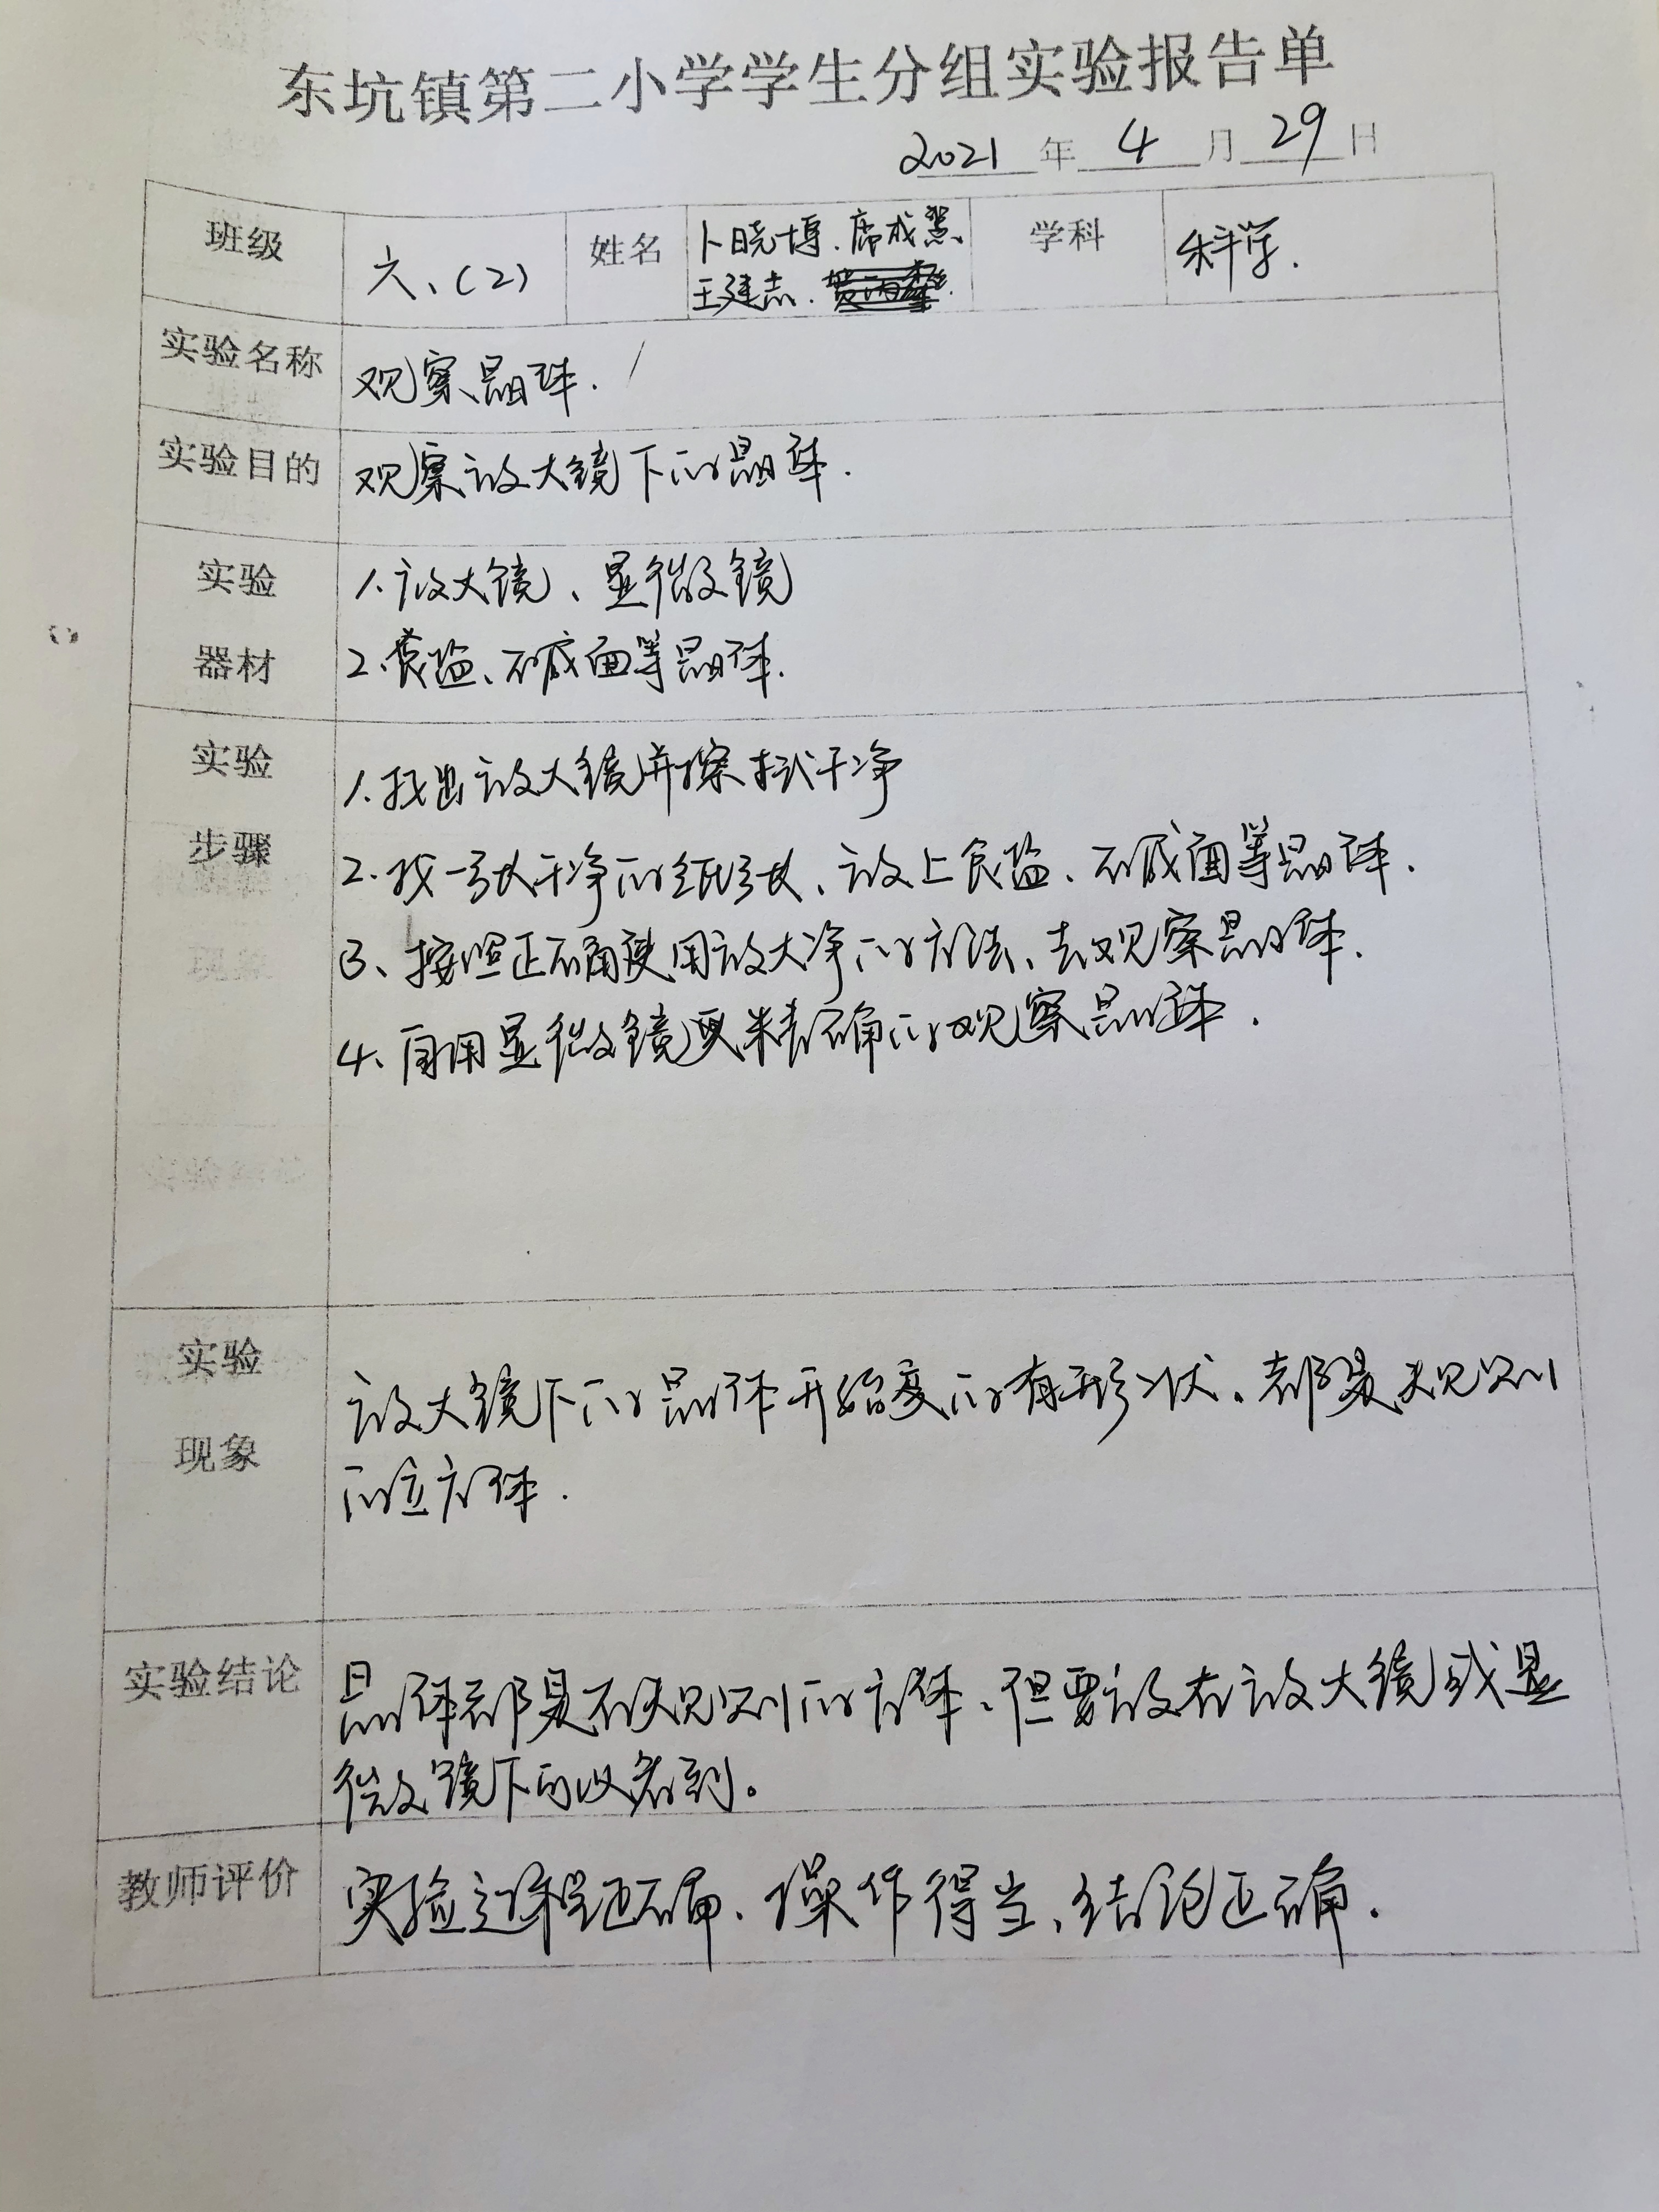 东坑镇第二小学学生分组实验报告单
2021 年 4 月 29 日
班级 六、(2) 姓名 卜晓博、席成 学科 科学.
王建志、
实验名称 观察晶体.
实验目的 观察放大镜下的晶体.
实验 1.放大镜、显微镜
器材 2.食盐、碱面等晶体.
实验 1.找出放大镜并擦拭干净
步骤 2.找一张干净的纸张、放上食盐、碱面等晶体.
3、按照正确使用放大净的方法、去观察晶体.
4、再用显微镜更精确的观察晶体.
实验 放大镜下的晶体开始变的有形状、都是规则
现象 的立方体.
实验结论 晶体都是不规则的方体、但要放在放大镜或显
微镜下可以看到。
教师评价 实验过程正确、操作得当、结论正确.